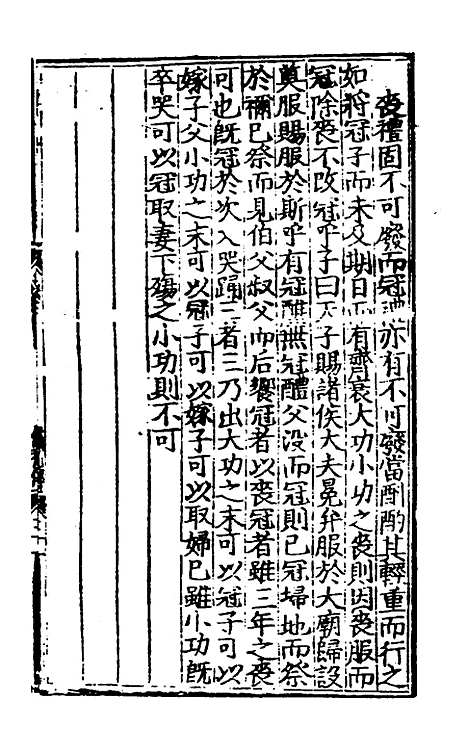 喪禮固不可發而冠禮亦有不可發當酌酌其輕重而行之
如將冠子而未及期日而有齊衰大功小功之喪則因喪服而
冠除喪不改冠乎子曰天子賜諸侯大夫冕弁服於大廟歸設
奠服賜服於斯乎有冠醮無冠醴父没而冠則已冠埽地而祭
於禰已祭而見伯父叔父而后饗冠者以喪冠者雖三年之喪
可也旣冠於次入哭踊三者三乃出大功之末可以冠子可以
嫁子父小功之末可以冠子可以嫁子可以取婦已雖小功旣
卒哭可以冠取妻下殤之小功則不可